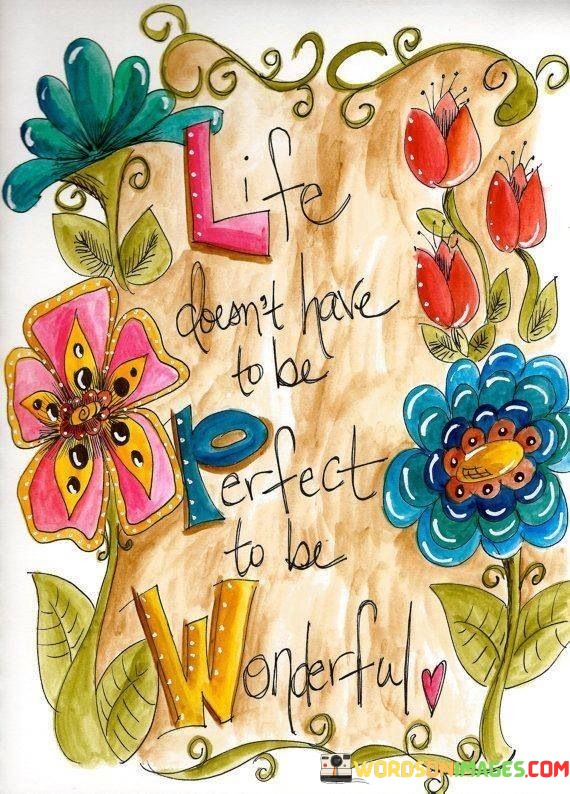 Life
doesn't have
to be
Perfect
to be
Wonderful
WORDSONIMAGES.COM